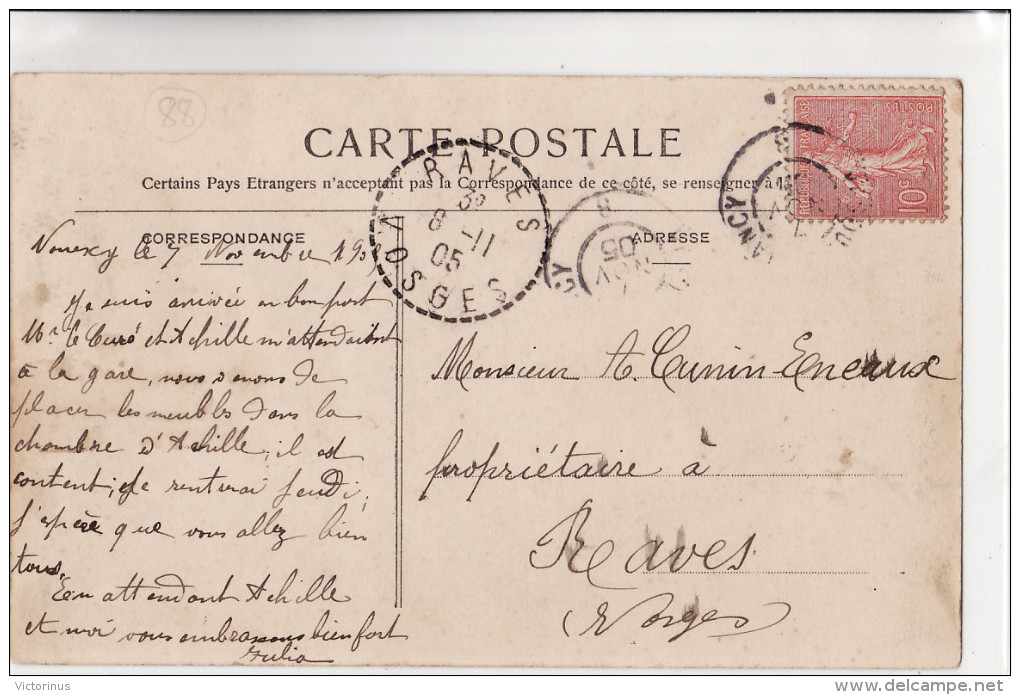 88
CARTE POSTALE
Certains Pays Etrangers n'acceptent pas la Correspondance de ce côté, se renseigner à la
CORRESPONDANCE
ADRESSE
RAVES
8 -11
05
VOSGES
NANCY
NOV
05
POSTES
REPUBLIQUE FRANÇAISE
10c
le 7 Novembre 1905
Je suis arrivée en bon port
Mr le Curé et Achille m'attendaient
à la gare, nous venons de
placer les meubles dans la
chambre d'Achille, il est
content; je rentrerai jeudi.
J'espère que vous allez bien
tous.
En attendant Achille
et moi vous embrassons bien fort
Julia
Monsieur A. Cunin-Encaux
propriétaire à
Raves
(Vosges)
Victorinus
www.delcampe.net